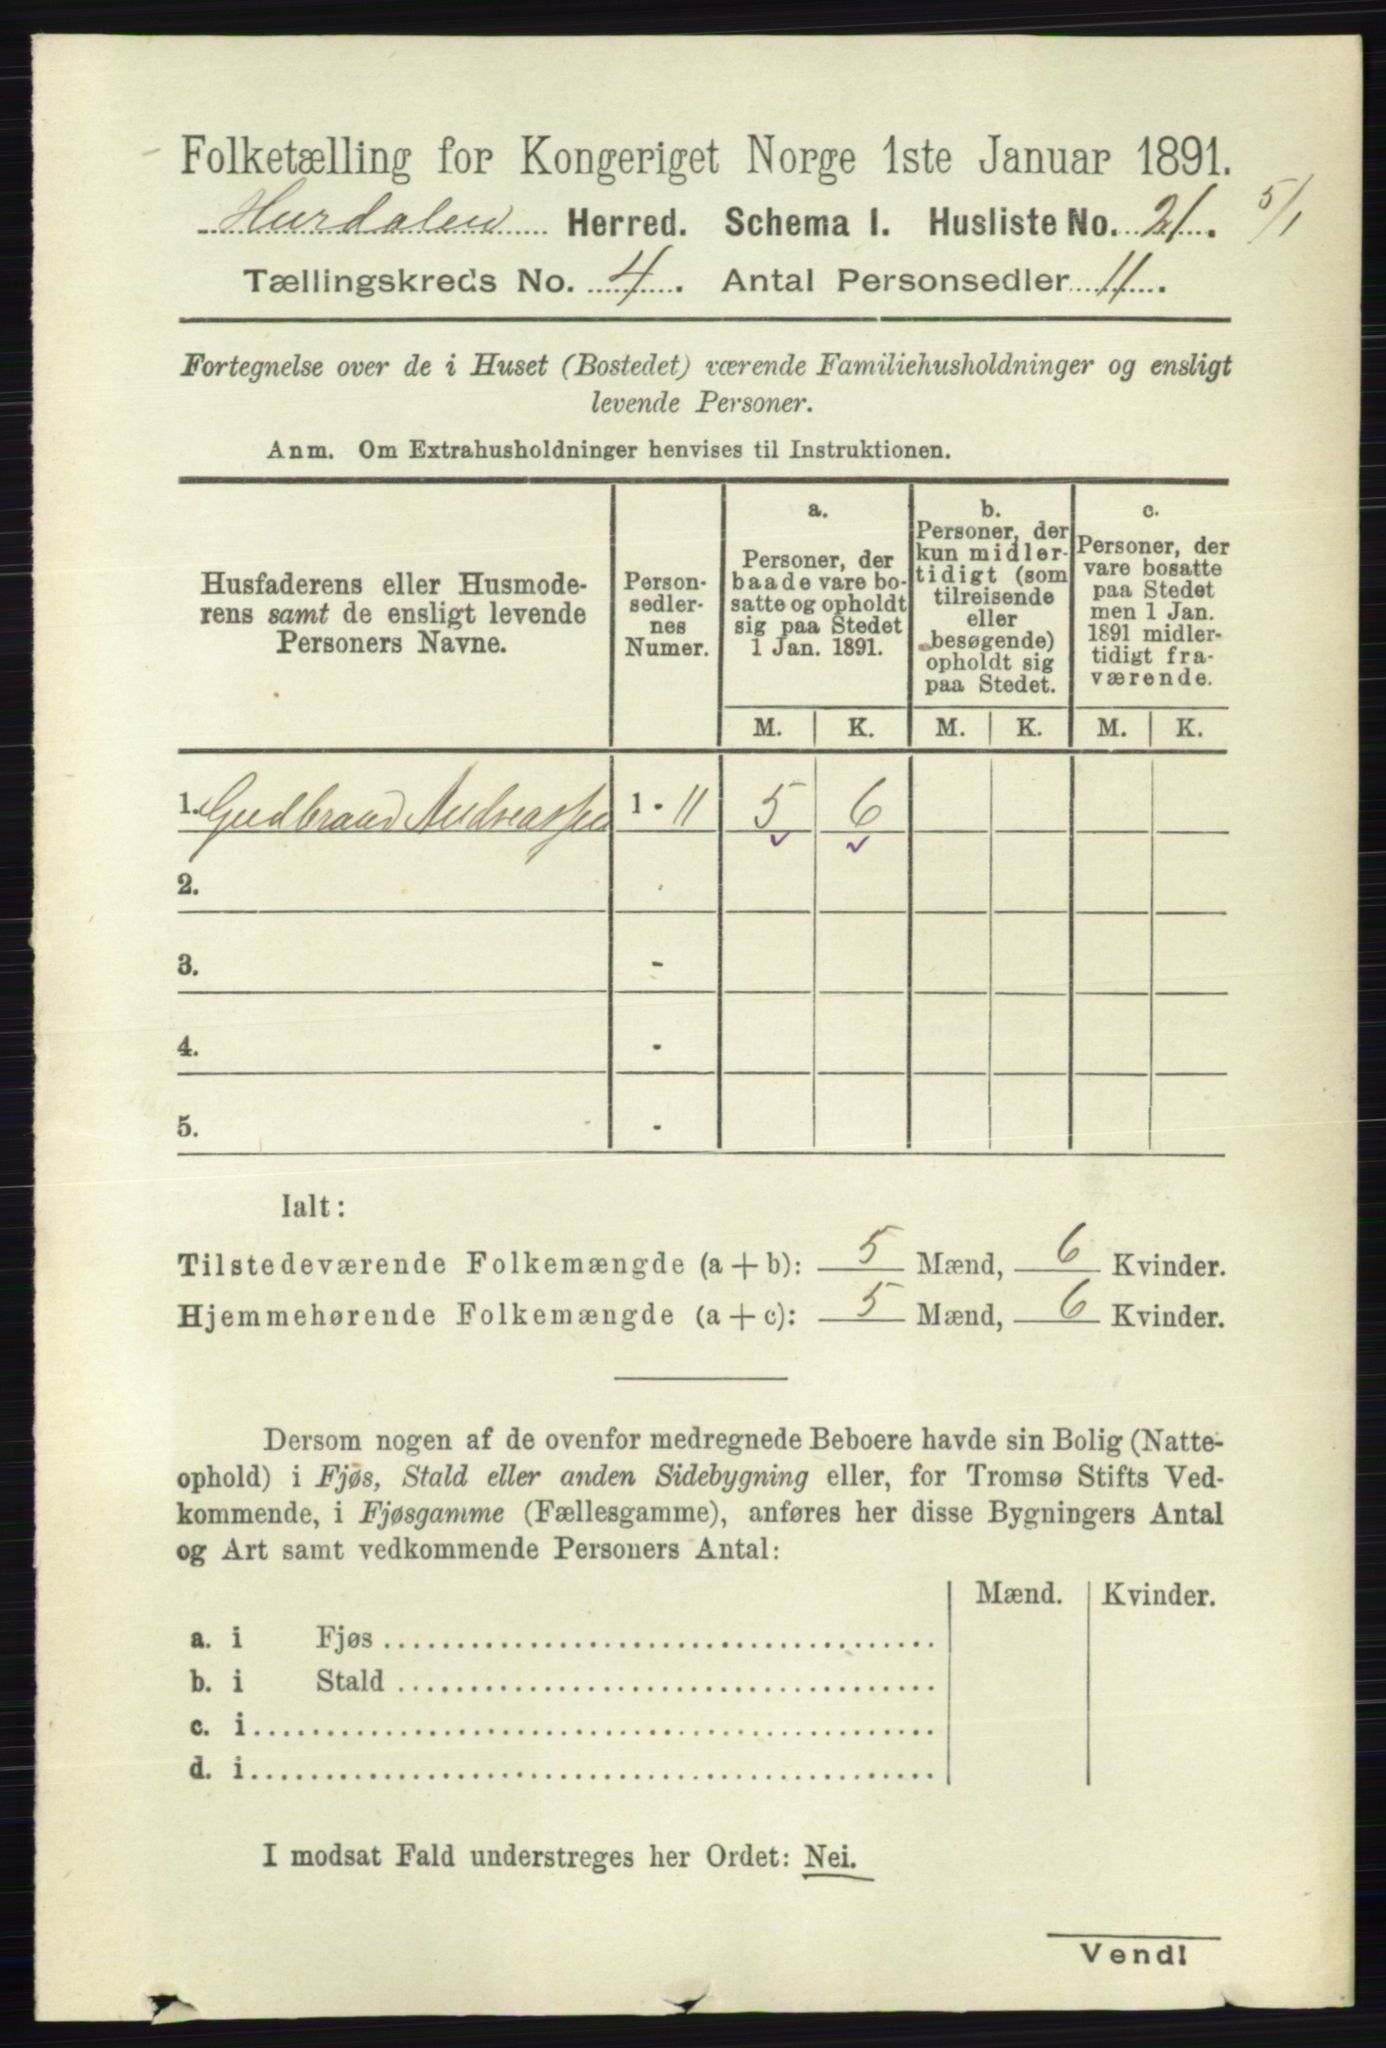 Folketælling for Kongeriget Norge 1ste Januar 1891.
Hurdalen Herred. Schema I. Husliste No. 21. 5/1
Tællingskreds No. 4. Antal Personsedler 11.
Fortegnelse over de i Huset (Bostedet) værende Familiehusholdninger og ensligt
levende Personer.
Anm. Om Extrahusholdninger henvises til Instruktionen.
Husfaderens eller Husmode-
rens samt de ensligt levende
Personers Navne.
Person-
sedler-
nes
Numer.
a.
Personer, der
baade vare bo-
satte og opholdt
sig paa Stedet
1 Jan. 1891.
b.
Personer, der
kun midler-
tidigt (som
tilreisende
eller
besøgende)
opholdt sig
paa Stedet.
c.
Personer, der
vare bosatte
paa Stedet
men 1 Jan.
1891 midler-
tidigt fra-
værende.
M. K. M. K. M. K.
1. Gudbrand Andreassen 1 - 11 5 6
2.
3. -
4. -
5. -
Ialt:
Tilstedeværende Folkemængde (a + b): 5 Mænd, 6 Kvinder.
Hjemmehørende Folkemængde (a + c): 5 Mænd, 6 Kvinder.
Dersom nogen af de ovenfor medregnede Beboere havde sin Bolig (Natte-
ophold) i Fjøs, Stald eller anden Sidebygning eller, for Tromsø Stifts Ved-
kommende, i Fjøsgamme (Fællesgamme), anføres her disse Bygningers Antal
og Art samt vedkommende Personers Antal:
Mænd. Kvinder.
a. i Fjøs
b. i Stald
c. i
d. i
I modsat Fald understreges her Ordet: Nei.
Vend!